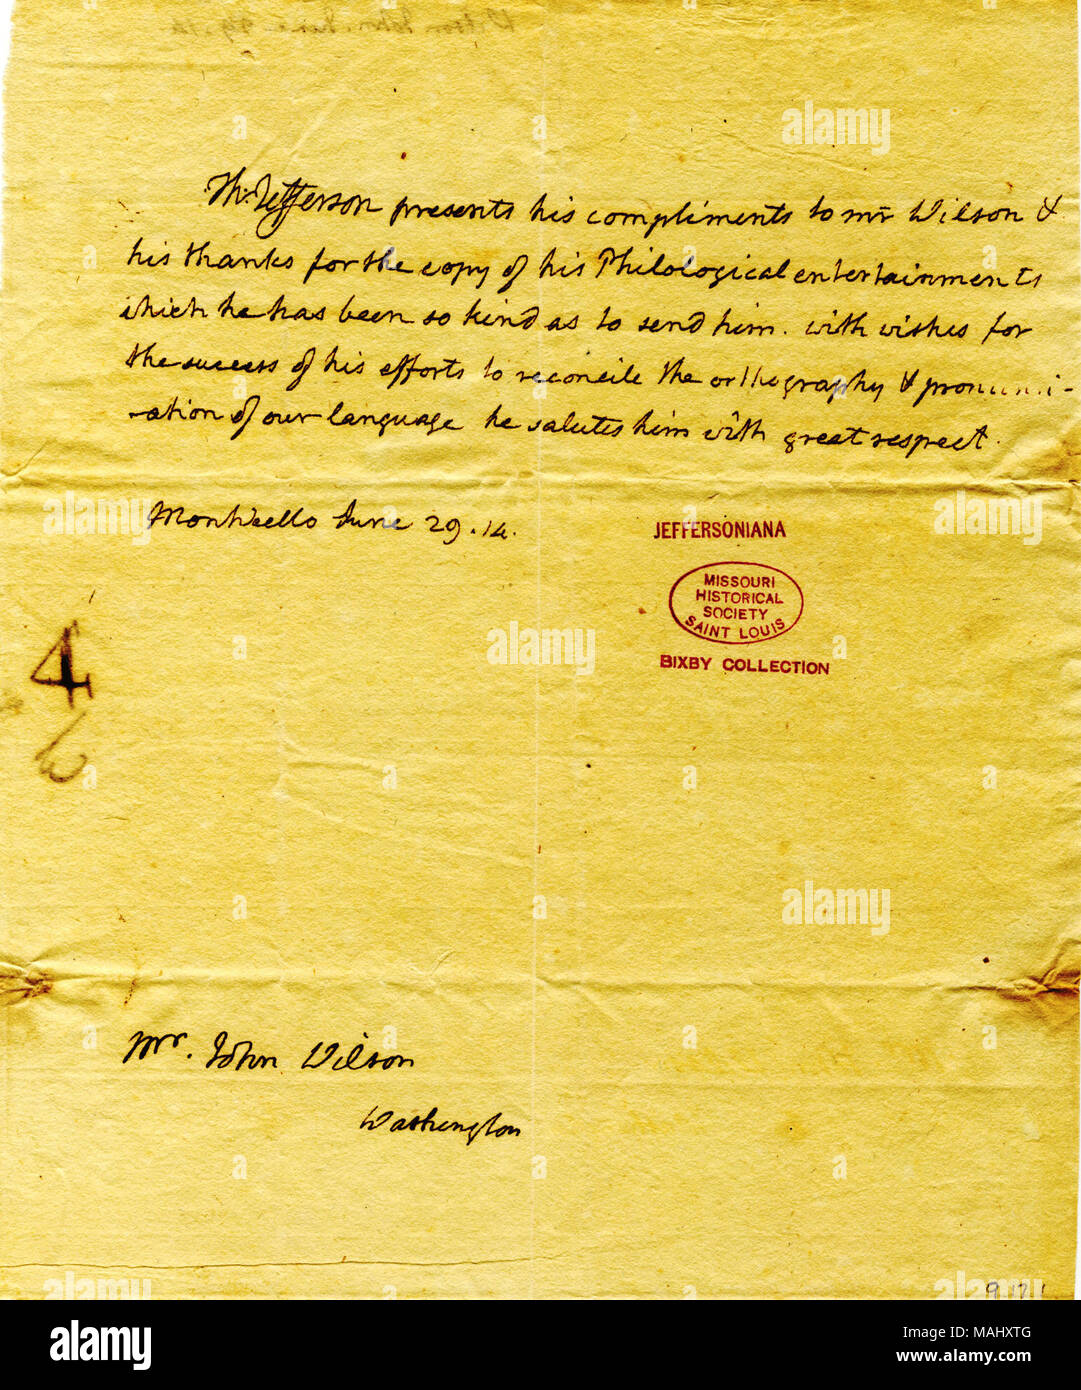 Th: Jefferson presents his compliments to mr Wilson &
his thanks for the copy of his Philological entertainments
which he has been so kind as to send him. with wishes for
the success of his efforts to reconcile the orthography & pronunci-
-ation of our language he salutes him with great respect.
Monticello June 29. 14.
JEFFERSONIANA
MISSOURI
HISTORICAL
SOCIETY
SAINT LOUIS
BIXBY COLLECTION
4
Mr. John Wilson
Washington
a
alamy
alamy stock photo
MAHXTG
www.alamy.com